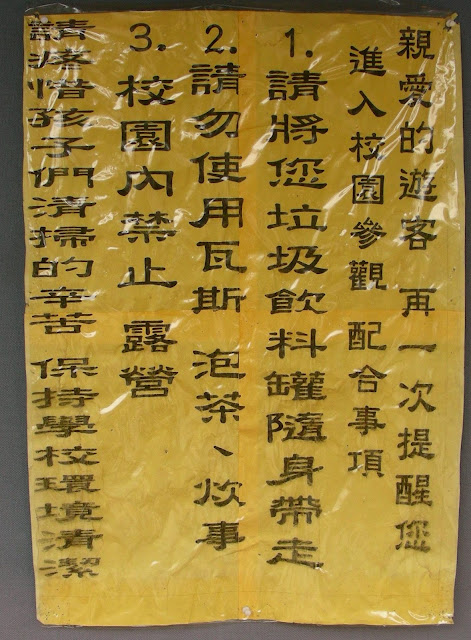 親愛的遊客 再一次提醒您
進入校園參觀 配合事項
1. 請將您垃圾飲料罐隨身帶走
2. 請勿使用瓦斯 泡茶、炊事
3. 校園內禁止 露營
請疼惜孩子們清掃的辛苦 保持學校環境清潔